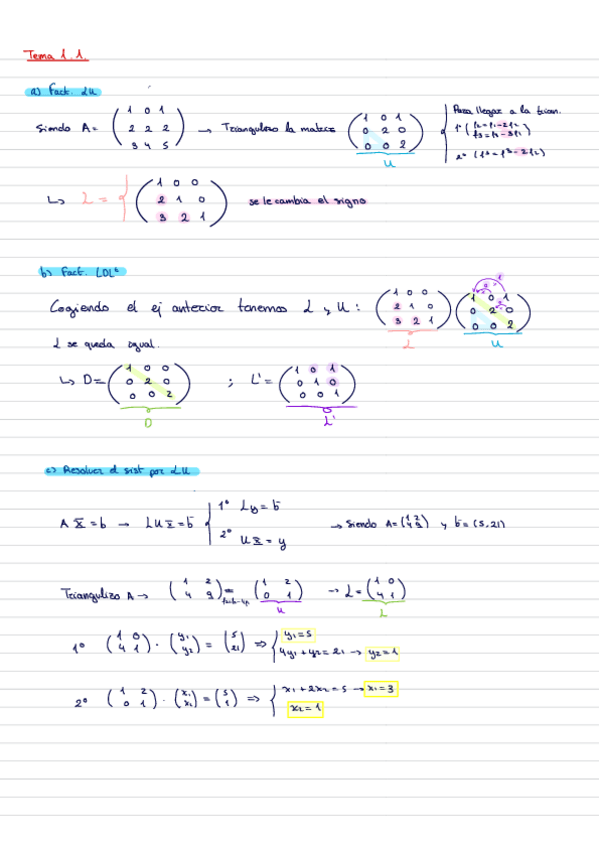 Tema 1.1.
a) Fact. LU
Siendo A = ( 1 0 1 / 2 2 2 / 3 4 5 ) → Triangulizo la matriz ( 1 0 1 / 0 2 0 / 0 0 2 ) U
Para llegar a la trian.
1º ( f2 = f2 - 2f1
f3 = f3 - 3f1 )
↳ L = { ( 1 0 0 / 2 1 0 / 3 2 1 ) se le cambia el signo
b) Fact. LDL^t
Cogiendo el ej anterior tenemos L y U : ( 1 0 0 / 2 1 0 / 3 2 1 ) ( 1 0 1 / 0 2 0 / 0 0 2 )
L U
L se queda igual.
↳ D = ( 1 0 0 / 0 2 0 / 0 0 2 ) ; L' = ( 1 0 1 / 0 1 0 / 0 0 1 )
D L'
c) Resolver el sist por LU
A x = b → LU x = b { 1º Ly = b
2º U x = y
→ Siendo A = ( 1 2 / 4 9 ) y b = (5, 21)
Triangulizo A → ( 1 2 / 4 9 ) = ( 1 2 / 0 1 ) → L = ( 1 0 / 4 1 )
U L
1º ( 1 0 / 4 1 ) · ( y1 / y2 ) = ( 5 / 21 ) ⇒ { y1 = 5
4y1 + y2 = 21 → y2 = 1
2º ( 1 2 / 0 1 ) · ( x1 / x2 ) = ( 5 / 1 ) ⇒ { x1 + 2x2 = 5 → x1 = 3
x2 = 1